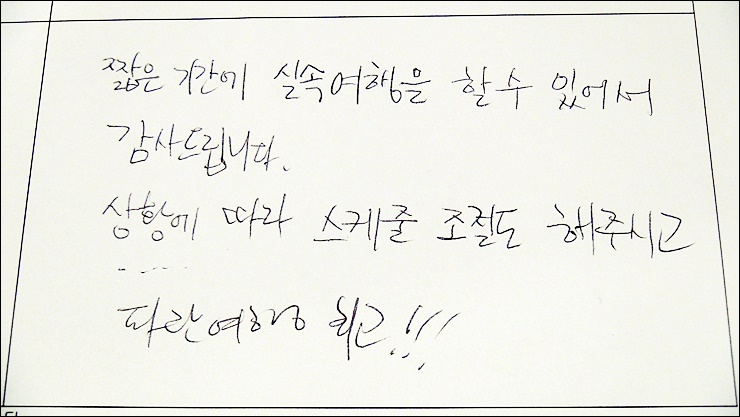 짧은 기간에 실속여행을 할 수 있어서
감사드립니다.
상황에 따라 스케줄 조절도 해주시고
......
파란여행 최고!!!